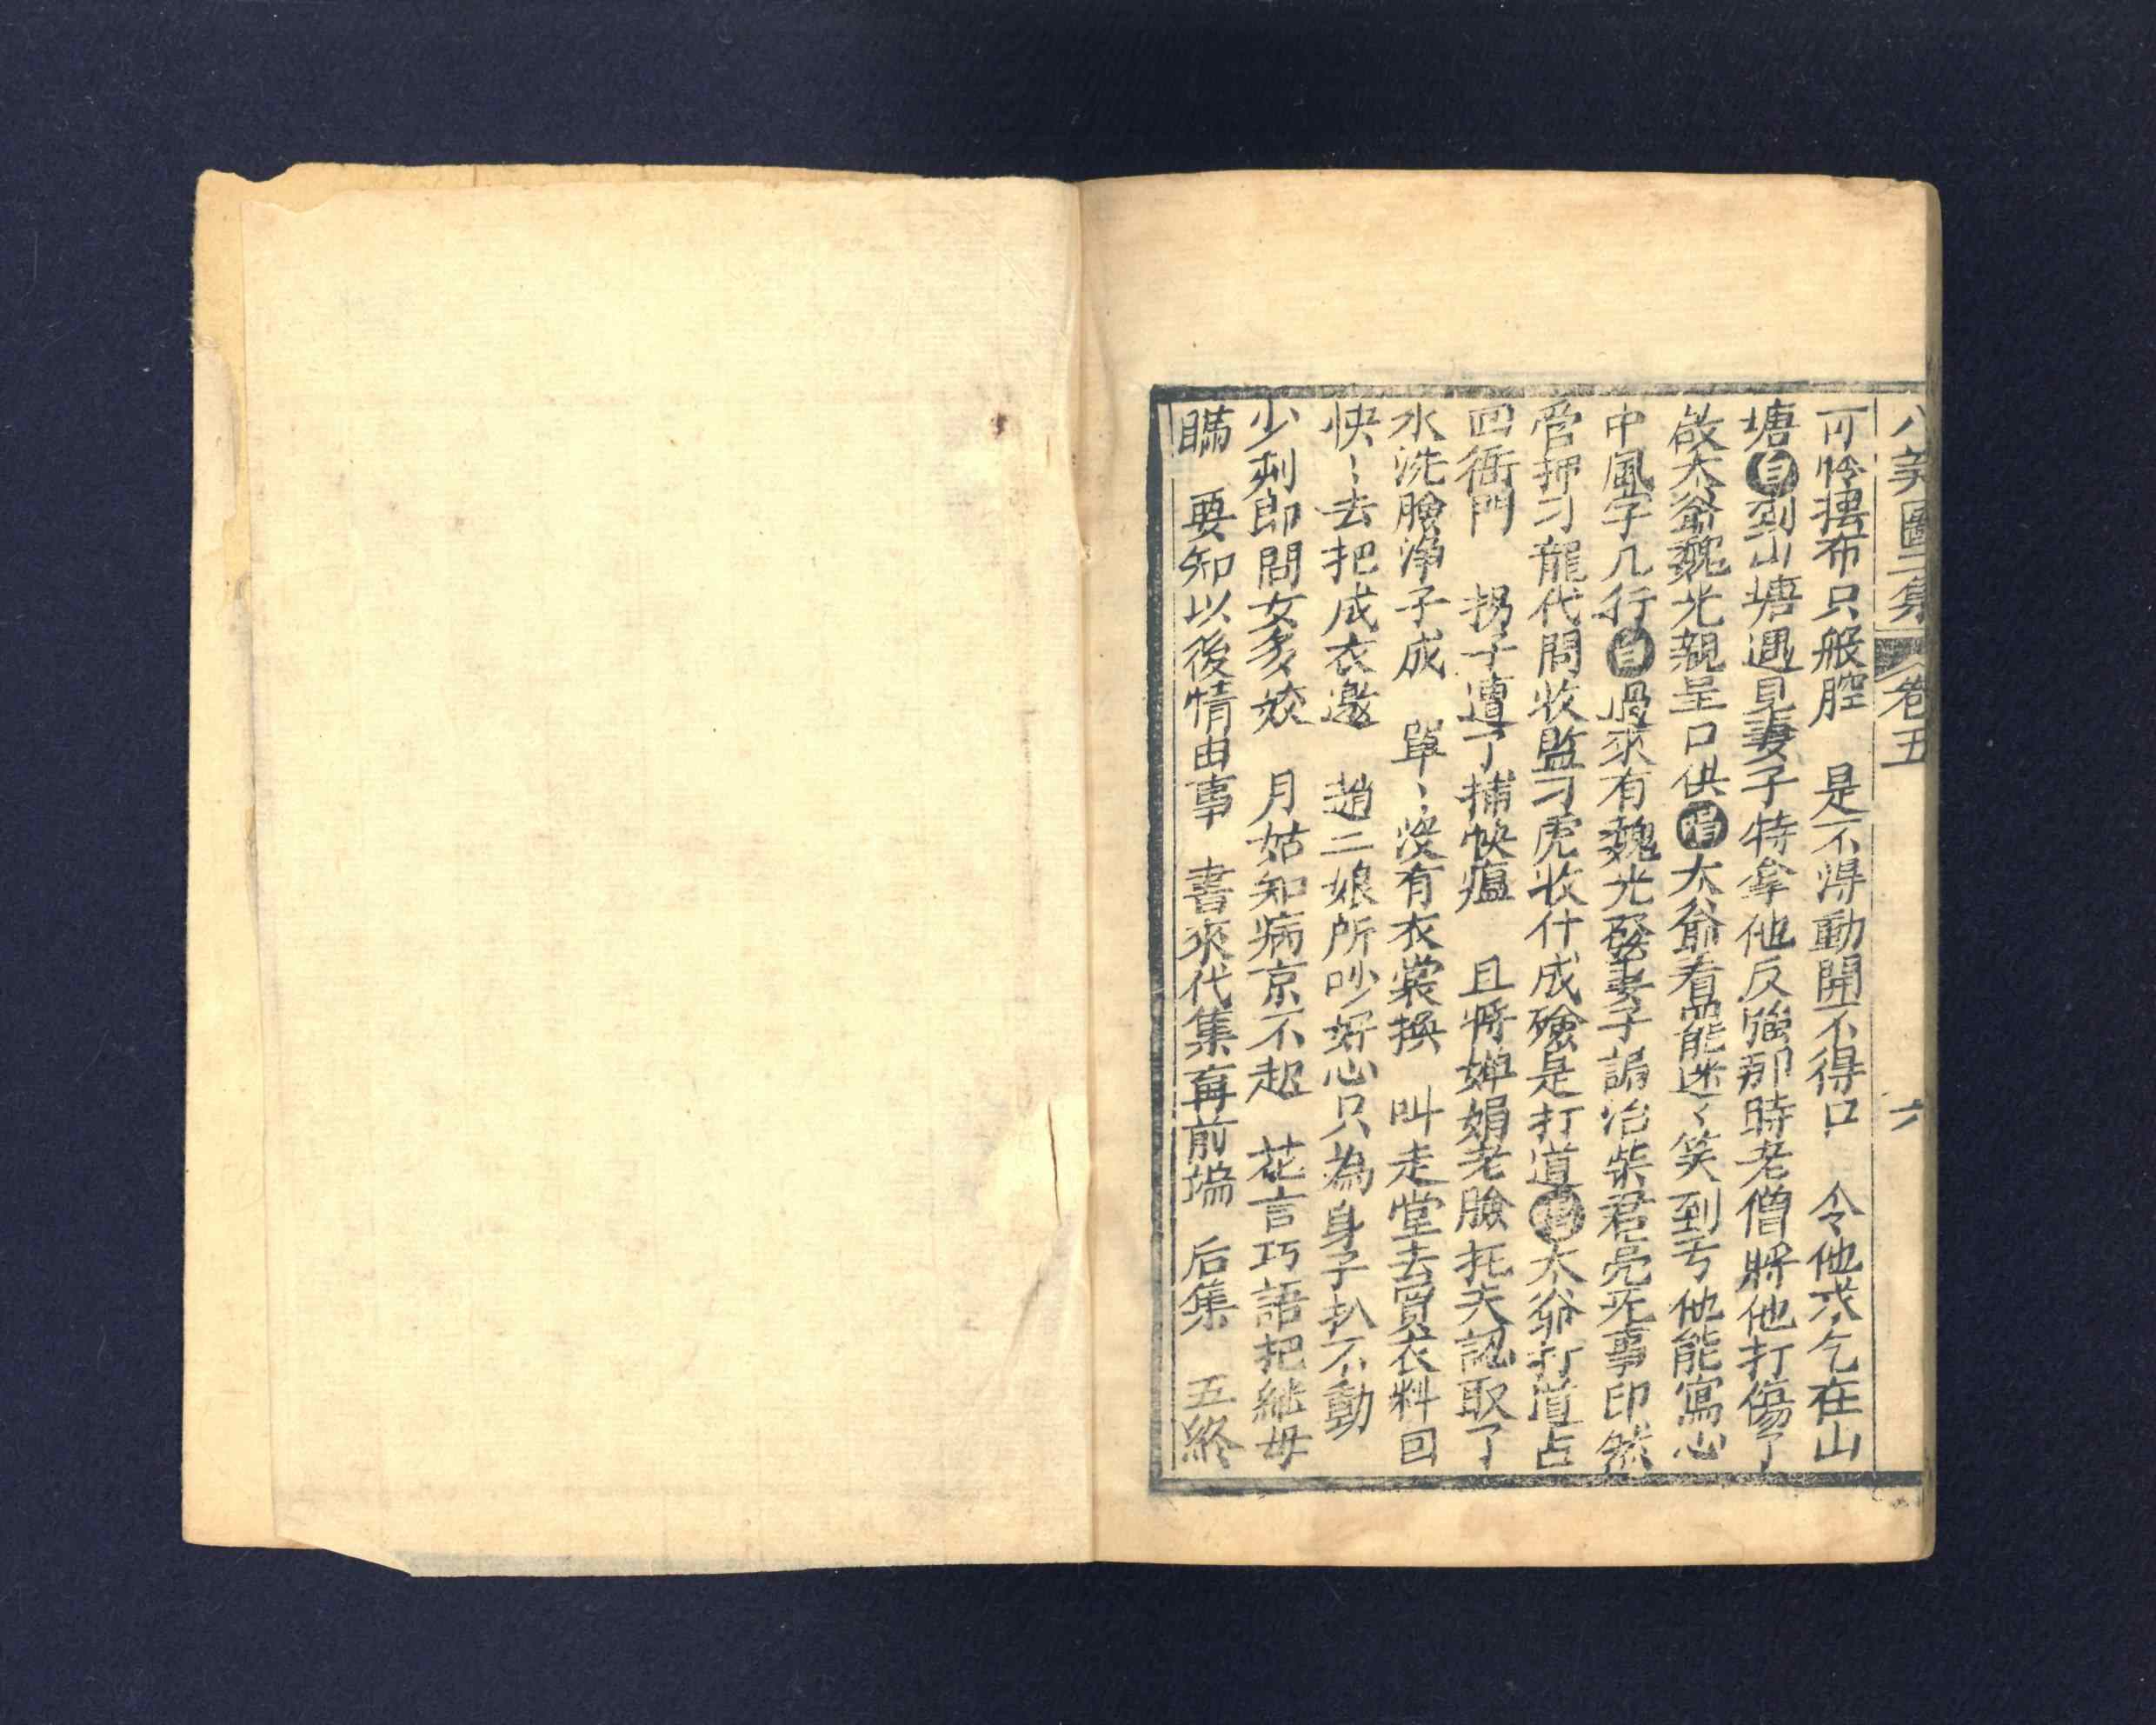 八美圖二集 卷五 六
可怜摆布只般腔 是不得動開不得口 令他求乞在山
塘白到山塘遇見妻子特拿他反強那時老僧將他打傷了
啟太爺魏光親呈口供唱太爺看罷迷々笑到亏他能寫心
中風字几行白過來有魏光發妻子調治柴君亮无事印然
管押刁龍代問收監刁虎收什成殮是打道唱太爺打道占
回衙門 拐子遭了捕快瘟 且將婵娟老臉托夫認取了
水洗臉淨子成 單々沒有衣裳換 叫走堂去買衣料回
快々去把成衣邀 趙二娘所吵好心只為身子扒不動
少刻即問女多姣 月姑知病京不起 花言巧語把継母
瞞 要知以後情由事 書來代集再前端 后集 五終